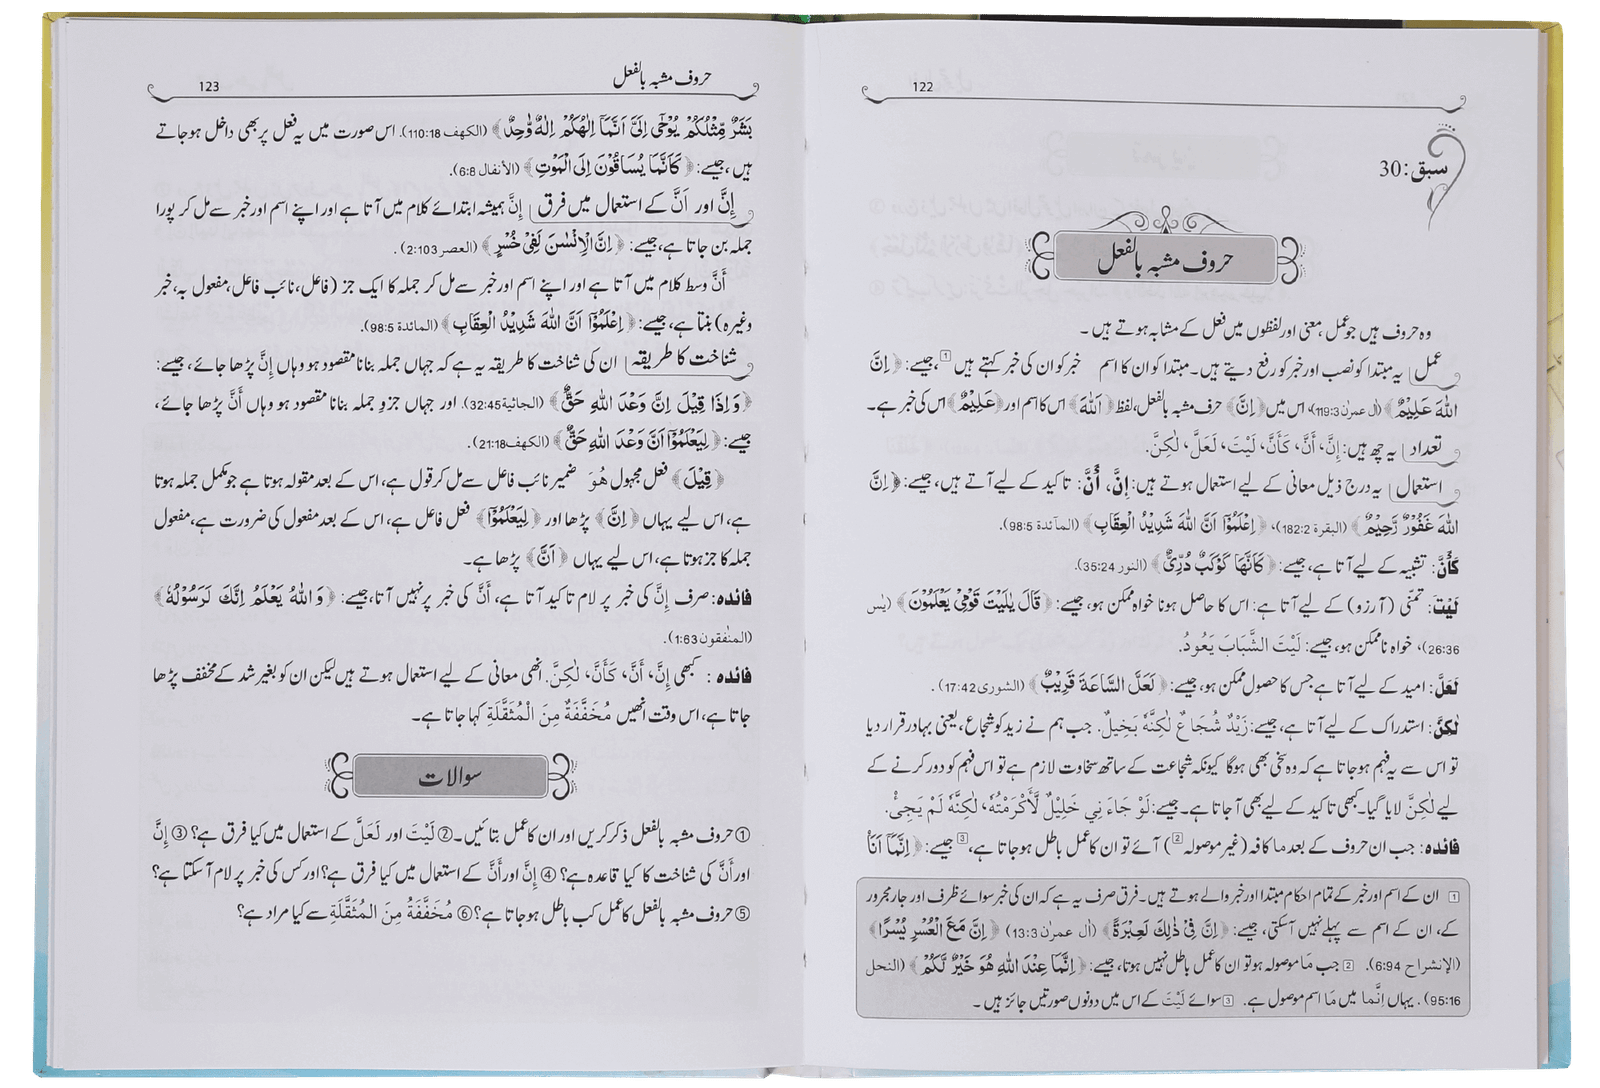 122
سبق:30
حروف مشبہ بالفعل
وہ حروف ہیں جو عمل، معنی اور لفظوں میں فعل کے مشابہ ہوتے ہیں۔
عمل یہ مبتدا کو نصب اور خبر کو رفع دیتے ہیں۔ مبتدا کو ان کا اسم خبر کو ان کی خبر کہتے ہیں 1، جیسے: ﴿ إِنَّ
اللّٰهَ عَلِيْمٌ ﴾ (اٰل عمرٰن 119:3)، اس میں ﴿ إِنَّ ﴾ حرف مشبہ بالفعل، لفظ ﴿ اَللّٰهَ ﴾ اس کا اسم اور ﴿ عَلِيْمٌ ﴾ اس کی خبر ہے۔
تعداد یہ چھ ہیں: إِنَّ، أَنَّ، كَأَنَّ، لَيْتَ، لَعَلَّ، لٰكِنَّ.
استعمال یہ درج ذیل معانی کے لیے استعمال ہوتے ہیں: إِنَّ، أَنَّ: تاکید کے لیے آتے ہیں، جیسے: ﴿ إِنَّ
اللّٰهَ غَفُوْرٌ رَّحِيْمٌ ﴾ (البقرة 182:2)، ﴿ اِعْلَمُوْٓا اَنَّ اللّٰهَ شَدِيْدُ الْعِقَابِ ﴾ (المآئدة 98:5)
كَأَنَّ: تشبیہ کے لیے آتا ہے، جیسے: ﴿ كَاَنَّهَا كَوْكَبٌ دُرِّيٌّ ﴾ (النور 35:24).
لَيْتَ: تمنّی (آرزو) کے لیے آتا ہے: اس کا حاصل ہونا خواہ ممکن ہو، جیسے: ﴿ قَالَ يٰلَيْتَ قَوْمِيْ يَعْلَمُوْنَ ﴾ (يٰس
26:36)، خواہ ناممکن ہو، جیسے: لَيْتَ الشَّبَابَ يَعُودُ.
لَعَلَّ: امید کے لیے آتا ہے جس کا حصول ممکن ہو، جیسے: ﴿ لَعَلَّ السَّاعَةَ قَرِيْبٌ ﴾ (الشورى 17:42).
لٰكِنَّ: استدراک کے لیے آتا ہے، جیسے: زَيْدٌ شُجَاعٌ لٰكِنَّهٗ بَخِيلٌ. جب ہم نے زید کو شجاع، یعنی بہادر قرار دیا
تو اس سے یہ فہم ہو جاتا ہے کہ وہ سخی بھی ہوگا کیونکہ شجاعت کے ساتھ سخاوت لازم ہے تو اس فہم کو دور کرنے کے
لیے لٰكِنَّ لایا گیا۔ کبھی تاکید کے لیے بھی آ جاتا ہے۔ جیسے: لَوْ جَاءَنِي خَلِيْلٌ لَّأَكْرَمْتُهٗ، لٰكِنَّهٗ لَمْ يَجِئْ.
فائدہ: جب ان حروف کے بعد ما کافہ (غیر موصولہ 2) آئے تو ان کا عمل باطل ہو جاتا ہے، 3 جیسے: ﴿ اِنَّمَآ اَنَا
1 ان کے اسم اور خبر کے تمام احکام مبتدا اور خبر والے ہوتے ہیں۔ فرق صرف یہ ہے کہ ان کی خبر سوائے ظرف اور جار مجرور
کے، ان کے اسم سے پہلے نہیں آسکتی، جیسے: ﴿ اِنَّ فِيْ ذٰلِكَ لَعِبْرَةً ﴾ (اٰل عمرٰن 13:3) ﴿ اِنَّ مَعَ الْعُسْرِ يُسْرًا ﴾
(الإنشراح 6:94). 2 جب مَا موصولہ ہو تو ان کا عمل باطل نہیں ہوتا، جیسے: ﴿ اِنَّمَا عِنْدَ اللّٰهِ هُوَ خَيْرٌ لَّكُمْ ﴾ (النحل
95:16). یہاں اِنَّما میں مَا اسم موصول ہے۔ 3 سوائے لَيْتَ کے اس میں دونوں صورتیں جائز ہیں۔
حروف مشبہ بالفعل 123
بَشَرٌ مِّثْلُكُمْ يُوْحٰٓى اِلَيَّ اَنَّمَآ اِلٰهُكُمْ اِلٰهٌ وَّاحِدٌ ﴾ (الكهف 110:18). اس صورت میں یہ فعل پر بھی داخل ہو جاتے
ہیں، جیسے: ﴿ كَاَنَّمَا يُسَاقُوْنَ اِلَى الْمَوْتِ ﴾ (الأنفال 6:8).
إِنَّ اور أَنَّ کے استعمال میں فرق إِنَّ ہمیشہ ابتدائے کلام میں آتا ہے اور اپنے اسم اور خبر سے مل کر پورا
جملہ بن جاتا ہے، جیسے: ﴿ اِنَّ الْاِنْسٰنَ لَفِيْ خُسْرٍ ﴾ (العصر 2:103).
أَنَّ وسط کلام میں آتا ہے اور اپنے اسم اور خبر سے مل کر جملہ کا ایک جز (فاعل، نائب فاعل، مفعول بہ، خبر
وغیرہ) بنتا ہے، جیسے: ﴿ اِعْلَمُوْٓا اَنَّ اللّٰهَ شَدِيْدُ الْعِقَابِ ﴾ (المائدة 98:5).
شناخت کا طریقہ ان کی شناخت کا طریقہ یہ ہے کہ جہاں جملہ بنانا مقصود ہو وہاں إِنَّ پڑھا جائے، جیسے:
﴿ وَاِذَا قِيْلَ اِنَّ وَعْدَ اللّٰهِ حَقٌّ ﴾ (الجاثية 32:45). اور جہاں جزوِ جملہ بنانا مقصود ہو وہاں أَنَّ پڑھا جائے،
جیسے: ﴿ لِيَعْلَمُوْٓا اَنَّ وَعْدَ اللّٰهِ حَقٌّ ﴾ (الكهف 21:18).
﴿ قِيْلَ ﴾ فعل مجہول هُوَ ضمیر نائب فاعل سے مل کر قول ہے، اس کے بعد مقولہ ہوتا ہے جو مکمل جملہ ہوتا
ہے، اس لیے یہاں ﴿ اِنَّ ﴾ پڑھا اور ﴿ لِيَعْلَمُوْٓا ﴾ فعل فاعل ہے، اس کے بعد مفعول کی ضرورت ہے، مفعول
جملہ کا جز ہوتا ہے، اس لیے یہاں ﴿ اَنَّ ﴾ پڑھا ہے۔
فائدہ: صرف إِنَّ کی خبر پر لام تاکید آتا ہے، أَنَّ کی خبر پر نہیں آتا، جیسے: ﴿ وَاللّٰهُ يَعْلَمُ اِنَّكَ لَرَسُوْلُهٗ ﴾
(المنٰفقون 1:63).
فائدہ: کبھی إِنَّ، أَنَّ، كَأَنَّ، لٰكِنَّ. انھی معانی کے لیے استعمال ہوتے ہیں لیکن ان کو بغیر شد کے مخفف پڑھا
جاتا ہے، اس وقت انھیں مُخَفَّفَةٌ مِنَ الْمُثَقَّلَةِ کہا جاتا ہے۔
سوالات
① حروف مشبہ بالفعل ذکر کریں اور ان کا عمل بتائیں۔ ② لَيْتَ اور لَعَلَّ کے استعمال میں کیا فرق ہے؟ ③ إِنَّ
اور أَنَّ کی شناخت کا کیا قاعدہ ہے؟ ④ إِنَّ اور أَنَّ کے استعمال میں کیا فرق ہے؟ اور کس کی خبر پر لام آ سکتا ہے؟
⑤ حروف مشبہ بالفعل کا عمل کب باطل ہو جاتا ہے؟ ⑥ مُخَفَّفَةٌ مِنَ المُثَقَّلَةِ سے کیا مراد ہے؟